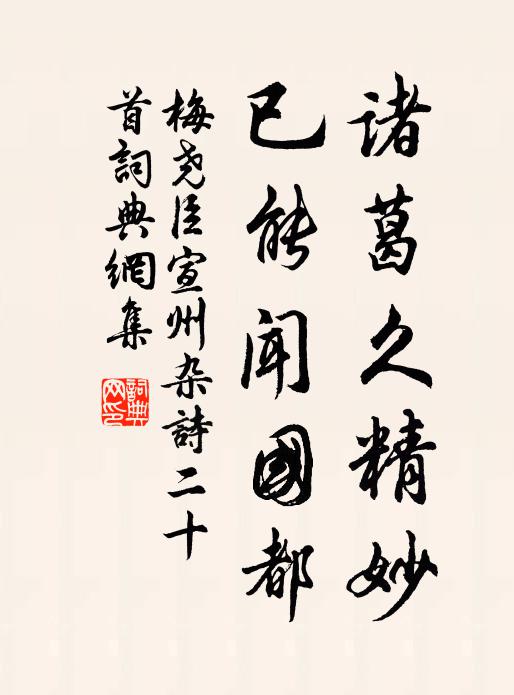 诸葛久精妙
已能闻國都
梅尧臣宣州杂詩二十
首詞典網集
詞典网印